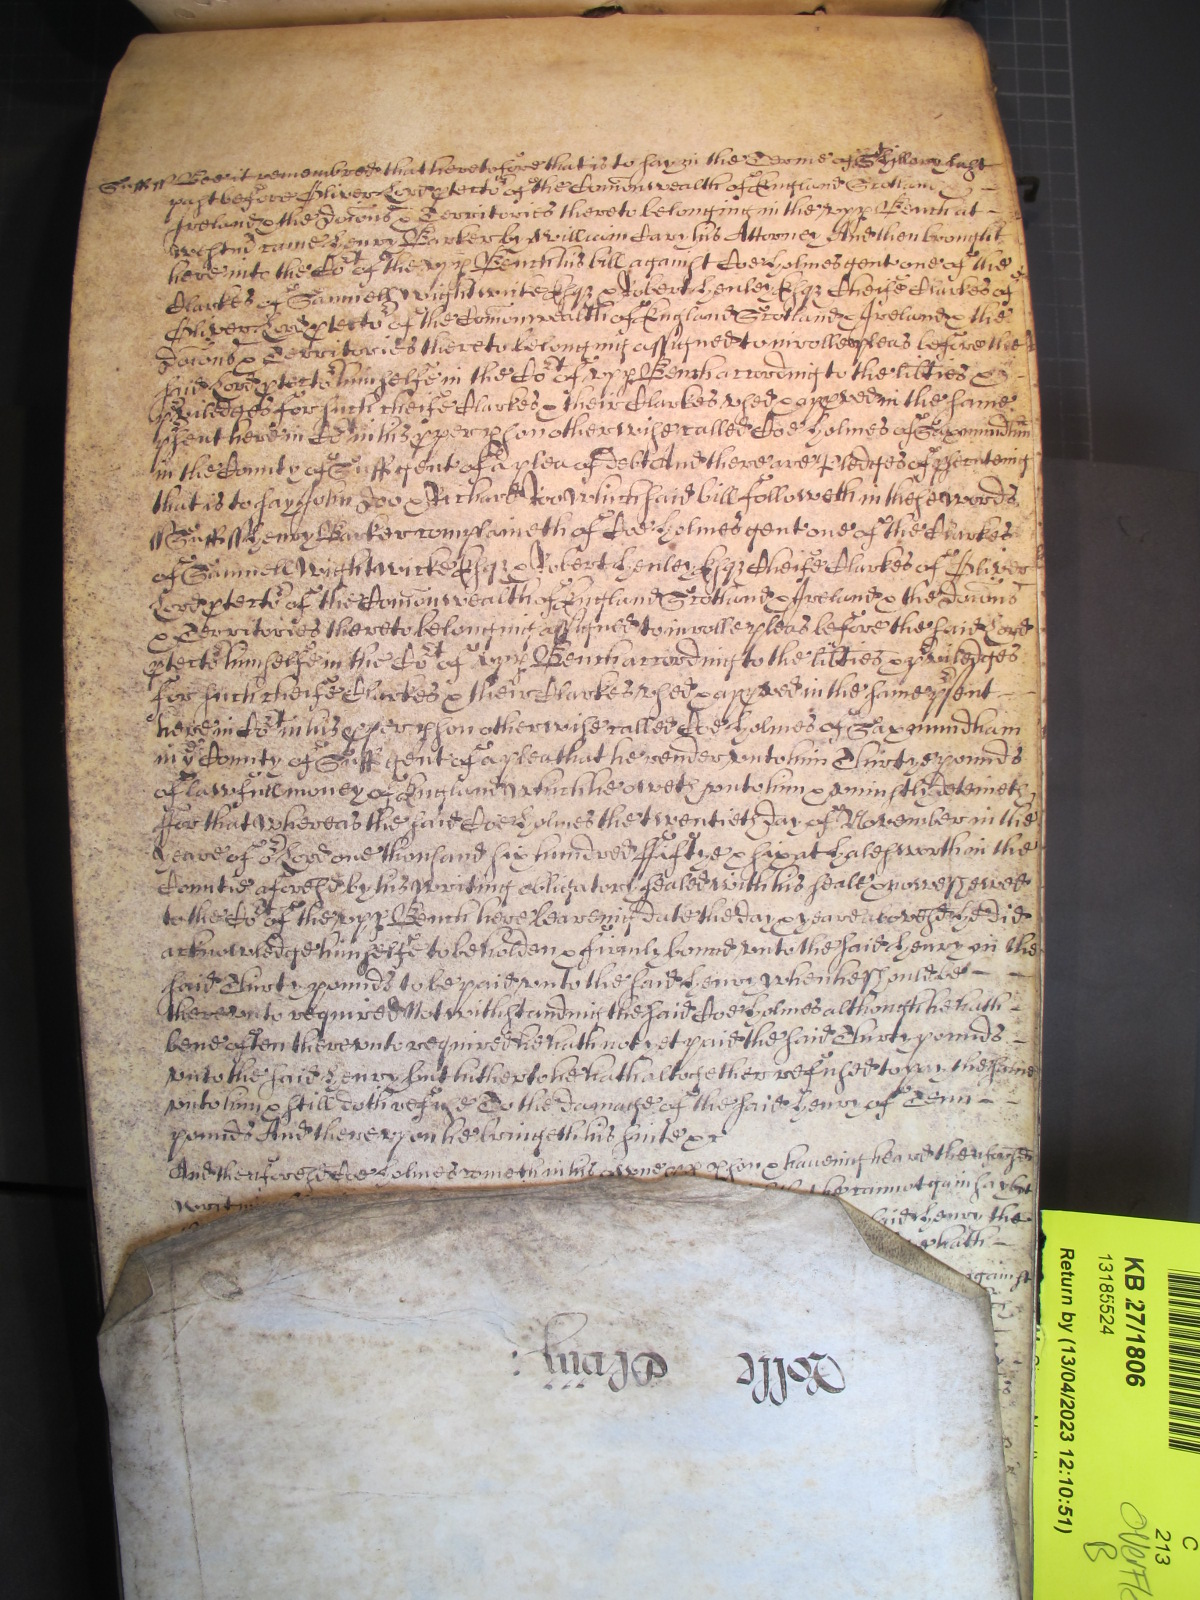 Suff ss Bee it remembred that heretofore that is to say in the Terme of St Hillary last
past before Oliver Lord ptector of the Comonwealth of England Scotland &
Ireland & the Doions & Territories thereto belonging in the upp Bench at
Westm came Henry Barker by William Cary his Attorney And then brought
here into the Cot of the upp Bench his bill against Coe Holmes gent one of the
Clarkes of Samuell Wightwicke Esqr & Robert Henley Esqr Cheife Clarkes of
Oliver Lord ptector of the Comonwealth of England Scotland & Ireland & the
Doions & Territories thereto belonging assigned to inrolle pleas before the
said Lord ptector himselfe in the Cot of upp Bench according to the libties &
priviledges for such cheife Clarkes & their Clarkes used & appved in the same
psent here in Cot in his pper pson otherwise called Coe Holmes of Saxmundham
in the County of Suff gent of a plea of debt And there are pledges of psecuteing
that is to say John Doo & Richard Roo Which said bill followeth in these words
ss Suff ss Henry Barker complaineth of Coe Holmes gent one of the Clarkes
of Samuell Wightwicke Esqr & Robert Henley Esqr Cheife Clarkes of Oliver
Lord ptector of the Comonwealth of England Scotland & Ireland & the Doions
& Territories thereto belonging assigned to inrolle pleas before the said Lord
ptector himselfe in the Cot of upp Bench according to the libties & priviledges
for such cheife Clarkes & their Clarkes used & appved in the same psent
here in Cot in his pper pson otherwise called Coe Holmes of Saxmundham
in ye County of Suff gent of a plea that he render unto him Thirtye pounds
of lawfull money of England Which he oweth unto him & uniustly deteineth
For that whereas the said Coe Holmes the twentieth day of November in the
yeare of or Lord one thousand six hundred Fiftye & six at Halesworth in the
Countie aforesd by his writing obligatory sealed with his seale & nowe shewed
to the Cot of the upp Bench here beareing date the day & yeare abovesd he did
acknowledge himselfe to be holden & firmly bound unto the said Henry in the
said Thirty pounds to be paid unto the said Henry when he should be
thereunto required Notwithstanding the said Coe Holmes although he hath
bene often thereunto required he hath not yet paid the said Thirty pounds
unto the said Henry but hitherto he hath altogether refused to pay the same
unto him & still doth refuse To the damage of the said Henry of Tenn
pounds And thereupon he bringeth his suite &c
And the aforesd Coe Holmes cometh in his owne pper pson & haveing heard the
cannot gainsay but
said Henry the
hath
against
Rolle
KB 27/1806
13185524
Return by (13/04/2023 12:10:51)
C
213